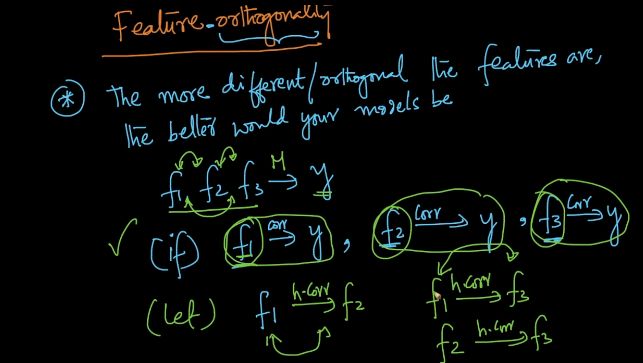 Feature-orthogonality
* The more different/orthogonal the features are,
the better would your models be
f1 f2 f3 M→ y
✓ (if) f1 corr→ y, f2 corr→ y, f3 corr→ y
(let) f1 h·corr→ f2 f1 h·corr→ f3
f2 h·corr→ f3